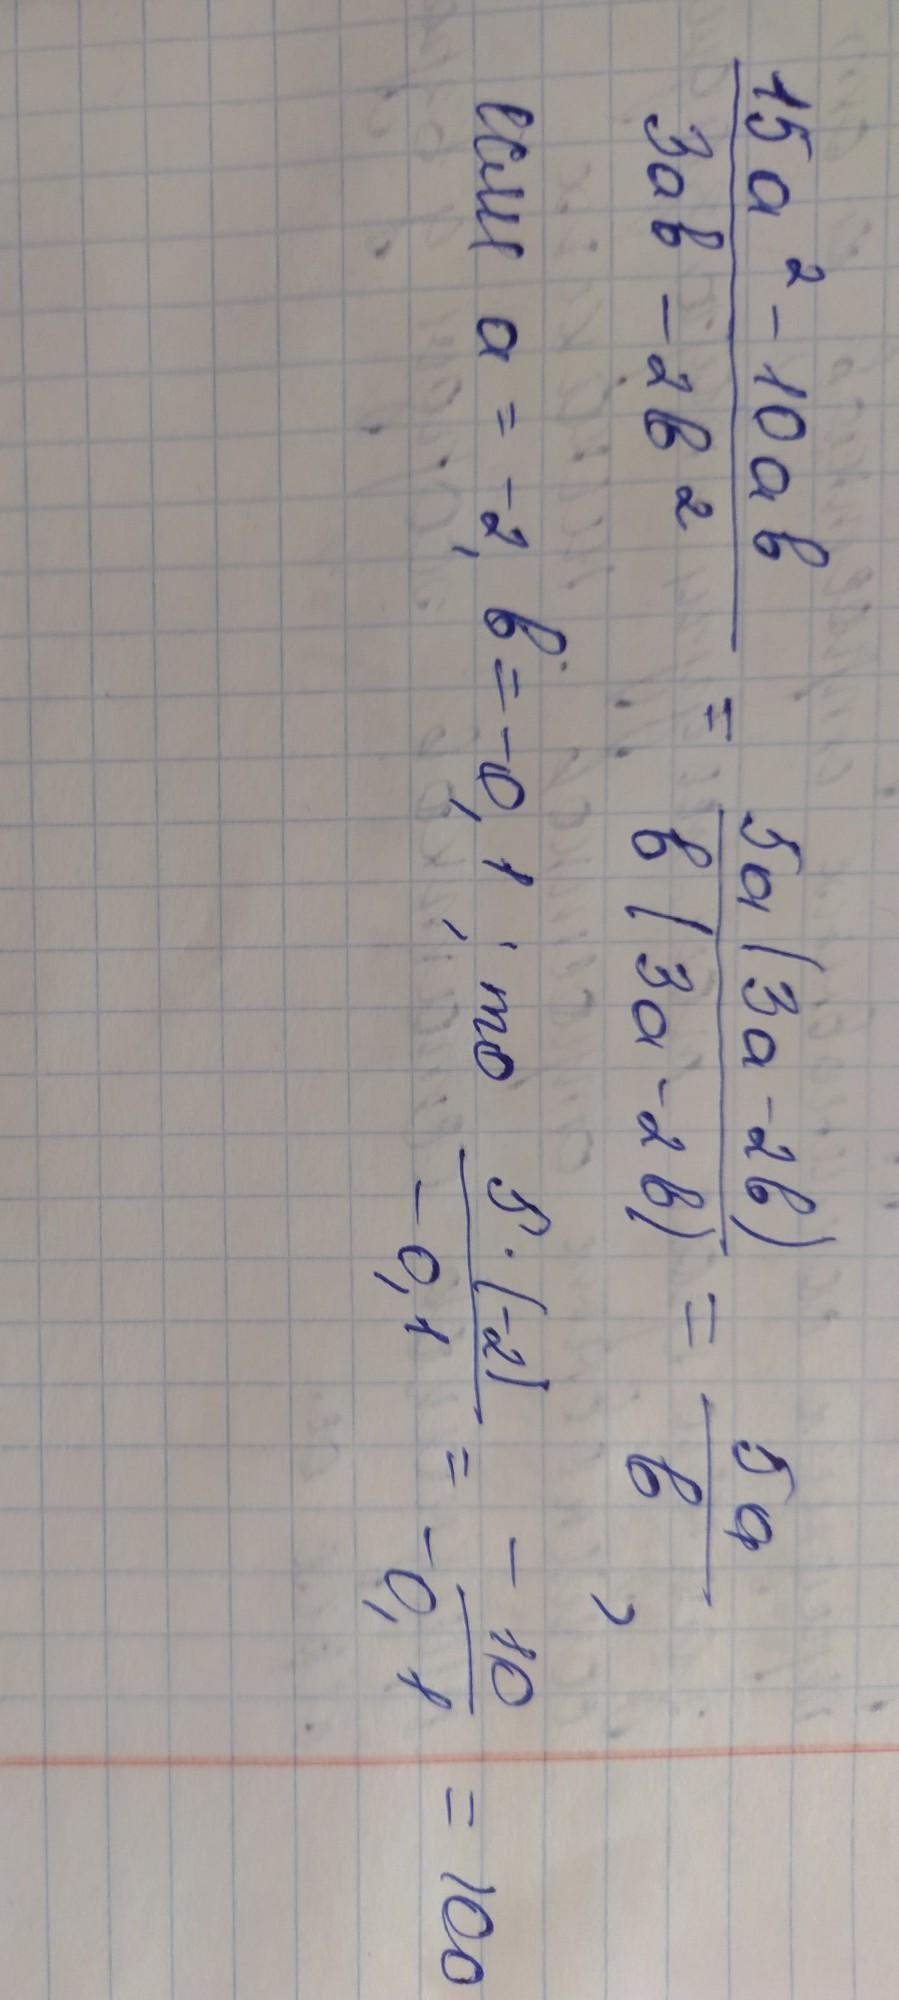 15a² - 10ab / 3ab - 2b² = 5a(3a - 2b) / b(3a - 2b) = 5a / b ,
если a = -2, b = -0,1, то 5·(-2) / -0,1 = -10 / -0,1 = 100